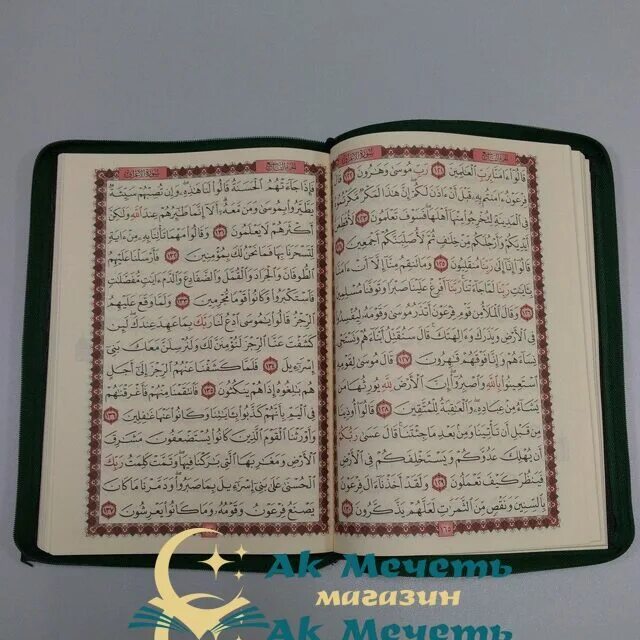 الجزء التاسع سورة الأعراف
قَالُوٓاْ ءَامَنَّا بِرَبِّ ٱلۡعَٰلَمِينَ ١٢١ رَبِّ مُوسَىٰ وَهَٰرُونَ ١٢٢ قَالَ
فِرۡعَوۡنُ ءَامَنتُم بِهِۦ قَبۡلَ أَنۡ ءَاذَنَ لَكُمۡۖ إِنَّ هَٰذَا لَمَكۡرٞ مَّكَرۡتُمُوهُ
فِي ٱلۡمَدِينَةِ لِتُخۡرِجُواْ مِنۡهَآ أَهۡلَهَاۖ فَسَوۡفَ تَعۡلَمُونَ ١٢٣ لَأُقَطِّعَنَّ
أَيۡدِيَكُمۡ وَأَرۡجُلَكُم مِّنۡ خِلَٰفٖ ثُمَّ لَأُصَلِّبَنَّكُمۡ أَجۡمَعِينَ ١٢٤
قَالُوٓاْ إِنَّآ إِلَىٰ رَبِّنَا مُنقَلِبُونَ ١٢٥ وَمَا تَنقِمُ مِنَّآ إِلَّآ أَنۡ ءَامَنَّا
بِـَٔايَٰتِ رَبِّنَا لَمَّا جَآءَتۡنَاۚ رَبَّنَآ أَفۡرِغۡ عَلَيۡنَا صَبۡرٗا وَتَوَفَّنَا مُسۡلِمِينَ
١٢٦ وَقَالَ ٱلۡمَلَأُ مِن قَوۡمِ فِرۡعَوۡنَ أَتَذَرُ مُوسَىٰ وَقَوۡمَهُۥ لِيُفۡسِدُواْ
فِي ٱلۡأَرۡضِ وَيَذَرَكَ وَءَالِهَتَكَۚ قَالَ سَنُقَتِّلُ أَبۡنَآءَهُمۡ وَنَسۡتَحۡيِۦ
نِسَآءَهُمۡ وَإِنَّا فَوۡقَهُمۡ قَٰهِرُونَ ١٢٧ قَالَ مُوسَىٰ لِقَوۡمِهِ
ٱسۡتَعِينُواْ بِٱللَّهِ وَٱصۡبِرُوٓاْۖ إِنَّ ٱلۡأَرۡضَ لِلَّهِ يُورِثُهَا مَن
يَشَآءُ مِنۡ عِبَادِهِۦۖ وَٱلۡعَٰقِبَةُ لِلۡمُتَّقِينَ ١٢٨ قَالُوٓاْ أُوذِينَا
مِن قَبۡلِ أَن تَأۡتِيَنَا وَمِنۢ بَعۡدِ مَا جِئۡتَنَاۚ قَالَ عَسَىٰ رَبُّكُمۡ
أَن يُهۡلِكَ عَدُوَّكُمۡ وَيَسۡتَخۡلِفَكُمۡ فِي ٱلۡأَرۡضِ
فَيَنظُرَ كَيۡفَ تَعۡمَلُونَ ١٢٩ وَلَقَدۡ أَخَذۡنَآ ءَالَ فِرۡعَوۡنَ
بِٱلسِّنِينَ وَنَقۡصٖ مِّنَ ٱلثَّمَرَٰتِ لَعَلَّهُمۡ يَذَّكَّرُونَ ١٣٠
الجزء التاسع سورة الأعراف
فَإِذَا جَآءَتۡهُمُ ٱلۡحَسَنَةُ قَالُواْ لَنَا هَٰذِهِۦۖ وَإِن تُصِبۡهُمۡ سَيِّئَةٞ
يَطَّيَّرُواْ بِمُوسَىٰ وَمَن مَّعَهُۥٓۗ أَلَآ إِنَّمَا طَٰٓئِرُهُمۡ عِندَ ٱللَّهِ وَلَٰكِنَّ
أَكۡثَرَهُمۡ لَا يَعۡلَمُونَ ١٣١ وَقَالُواْ مَهۡمَا تَأۡتِنَا بِهِۦ مِنۡ ءَايَةٖ
لِّتَسۡحَرَنَا بِهَا فَمَا نَحۡنُ لَكَ بِمُؤۡمِنِينَ ١٣٢ فَأَرۡسَلۡنَا عَلَيۡهِمُ
ٱلطُّوفَانَ وَٱلۡجَرَادَ وَٱلۡقُمَّلَ وَٱلضَّفَادِعَ وَٱلدَّمَ ءَايَٰتٖ مُّفَصَّلَٰتٖ
فَٱسۡتَكۡبَرُواْ وَكَانُواْ قَوۡمٗا مُّجۡرِمِينَ ١٣٣ وَلَمَّا وَقَعَ عَلَيۡهِمُ
ٱلرِّجۡزُ قَالُواْ يَٰمُوسَى ٱدۡعُ لَنَا رَبَّكَ بِمَا عَهِدَ عِندَكَۖ لَئِن
كَشَفۡتَ عَنَّا ٱلرِّجۡزَ لَنُؤۡمِنَنَّ لَكَ وَلَنُرۡسِلَنَّ مَعَكَ بَنِيٓ
إِسۡرَٰٓءِيلَ ١٣٤ فَلَمَّا كَشَفۡنَا عَنۡهُمُ ٱلرِّجۡزَ إِلَىٰٓ أَجَلٍ
هُم بَٰلِغُوهُ إِذَا هُمۡ يَنكُثُونَ ١٣٥ فَٱنتَقَمۡنَا مِنۡهُمۡ فَأَغۡرَقۡنَٰهُمۡ
فِي ٱلۡيَمِّ بِأَنَّهُمۡ كَذَّبُواْ بِـَٔايَٰتِنَا وَكَانُواْ عَنۡهَا غَٰفِلِينَ ١٣٦
وَأَوۡرَثۡنَا ٱلۡقَوۡمَ ٱلَّذِينَ كَانُواْ يُسۡتَضۡعَفُونَ مَشَٰرِقَ
ٱلۡأَرۡضِ وَمَغَٰرِبَهَا ٱلَّتِي بَٰرَكۡنَا فِيهَاۖ وَتَمَّتۡ كَلِمَتُ رَبِّكَ
ٱلۡحُسۡنَىٰ عَلَىٰ بَنِيٓ إِسۡرَٰٓءِيلَ بِمَا صَبَرُواْۖ وَدَمَّرۡنَا مَا كَانَ
يَصۡنَعُ فِرۡعَوۡنُ وَقَوۡمُهُۥ وَمَا كَانُواْ يَعۡرِشُونَ ١٣٧
Ак Мечеть
магазин
Ак Мечеть